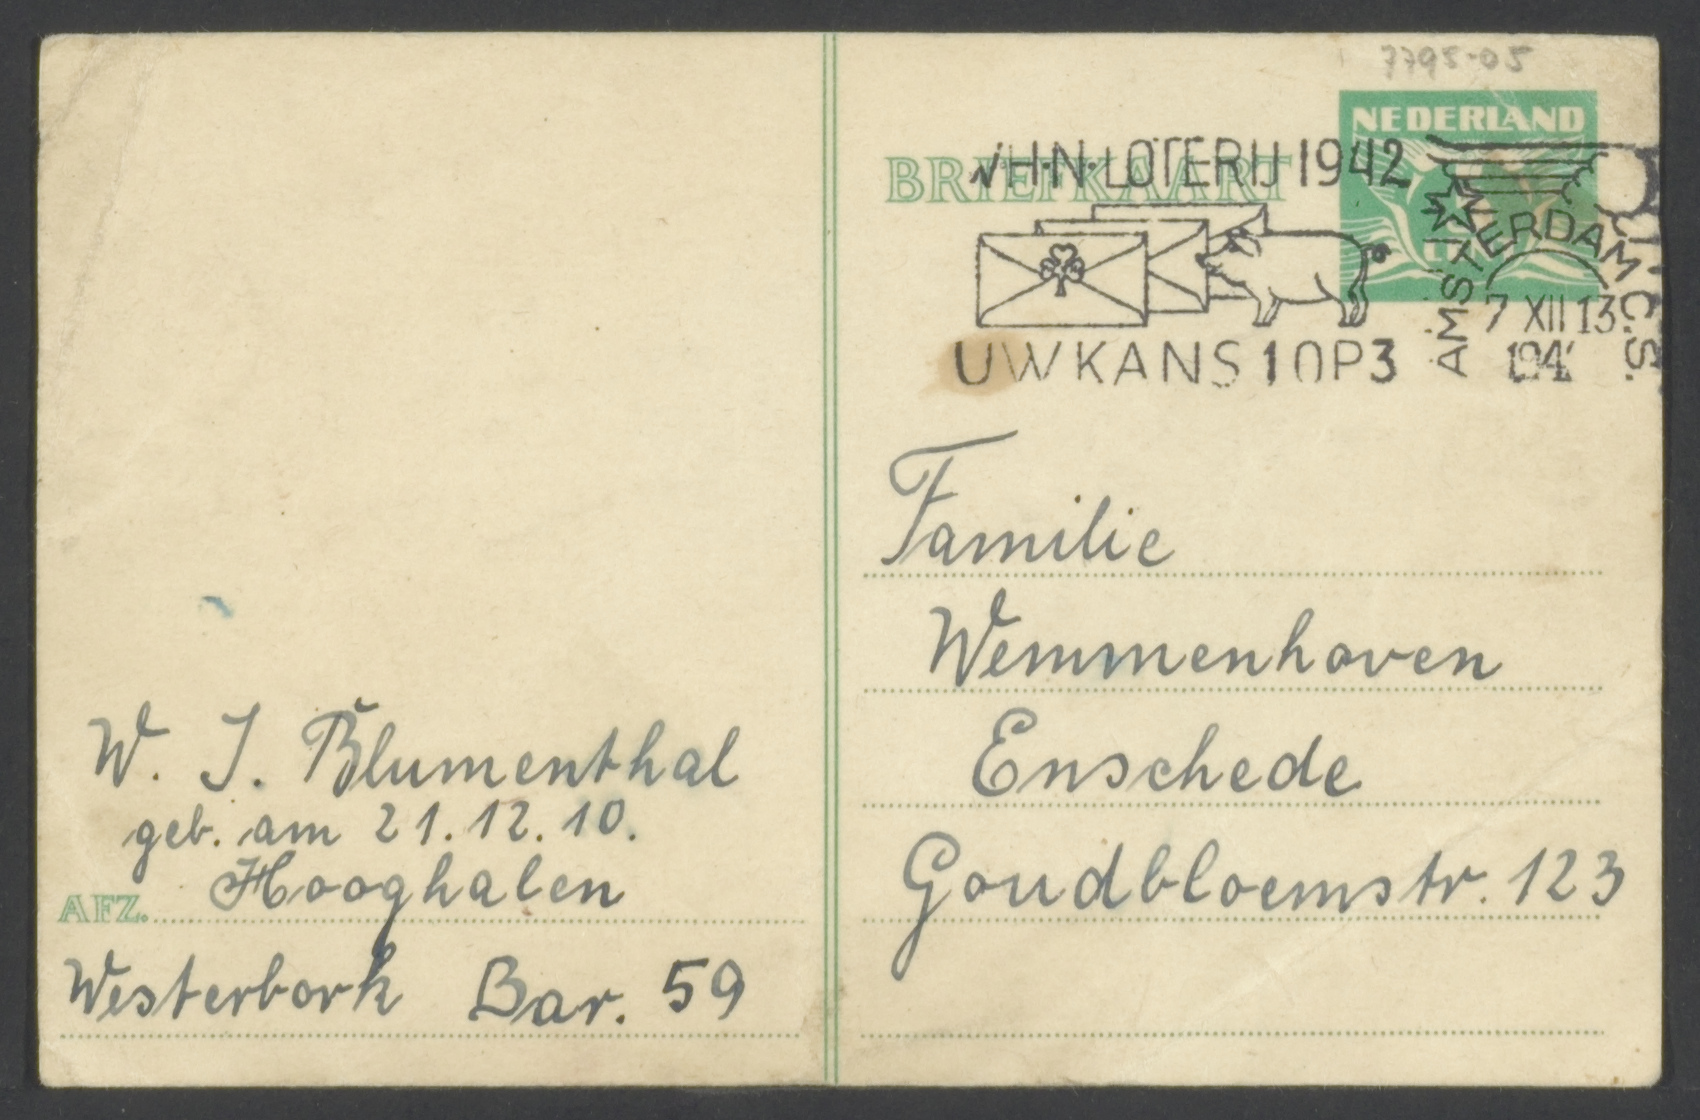 7795-05
NEDERLAND
BRIEFKAART
W·H·N·LOTERIJ 1942
AMSTERDAM C.S.
7 XII 13
UW KANS 1 OP 3
Familie
Wemmenhoven
Enschede
Goudbloemstr. 123
W. J. Blumenthal
geb. am 21.12.10.
Hooghalen
AFZ.
Westerbork Bar. 59